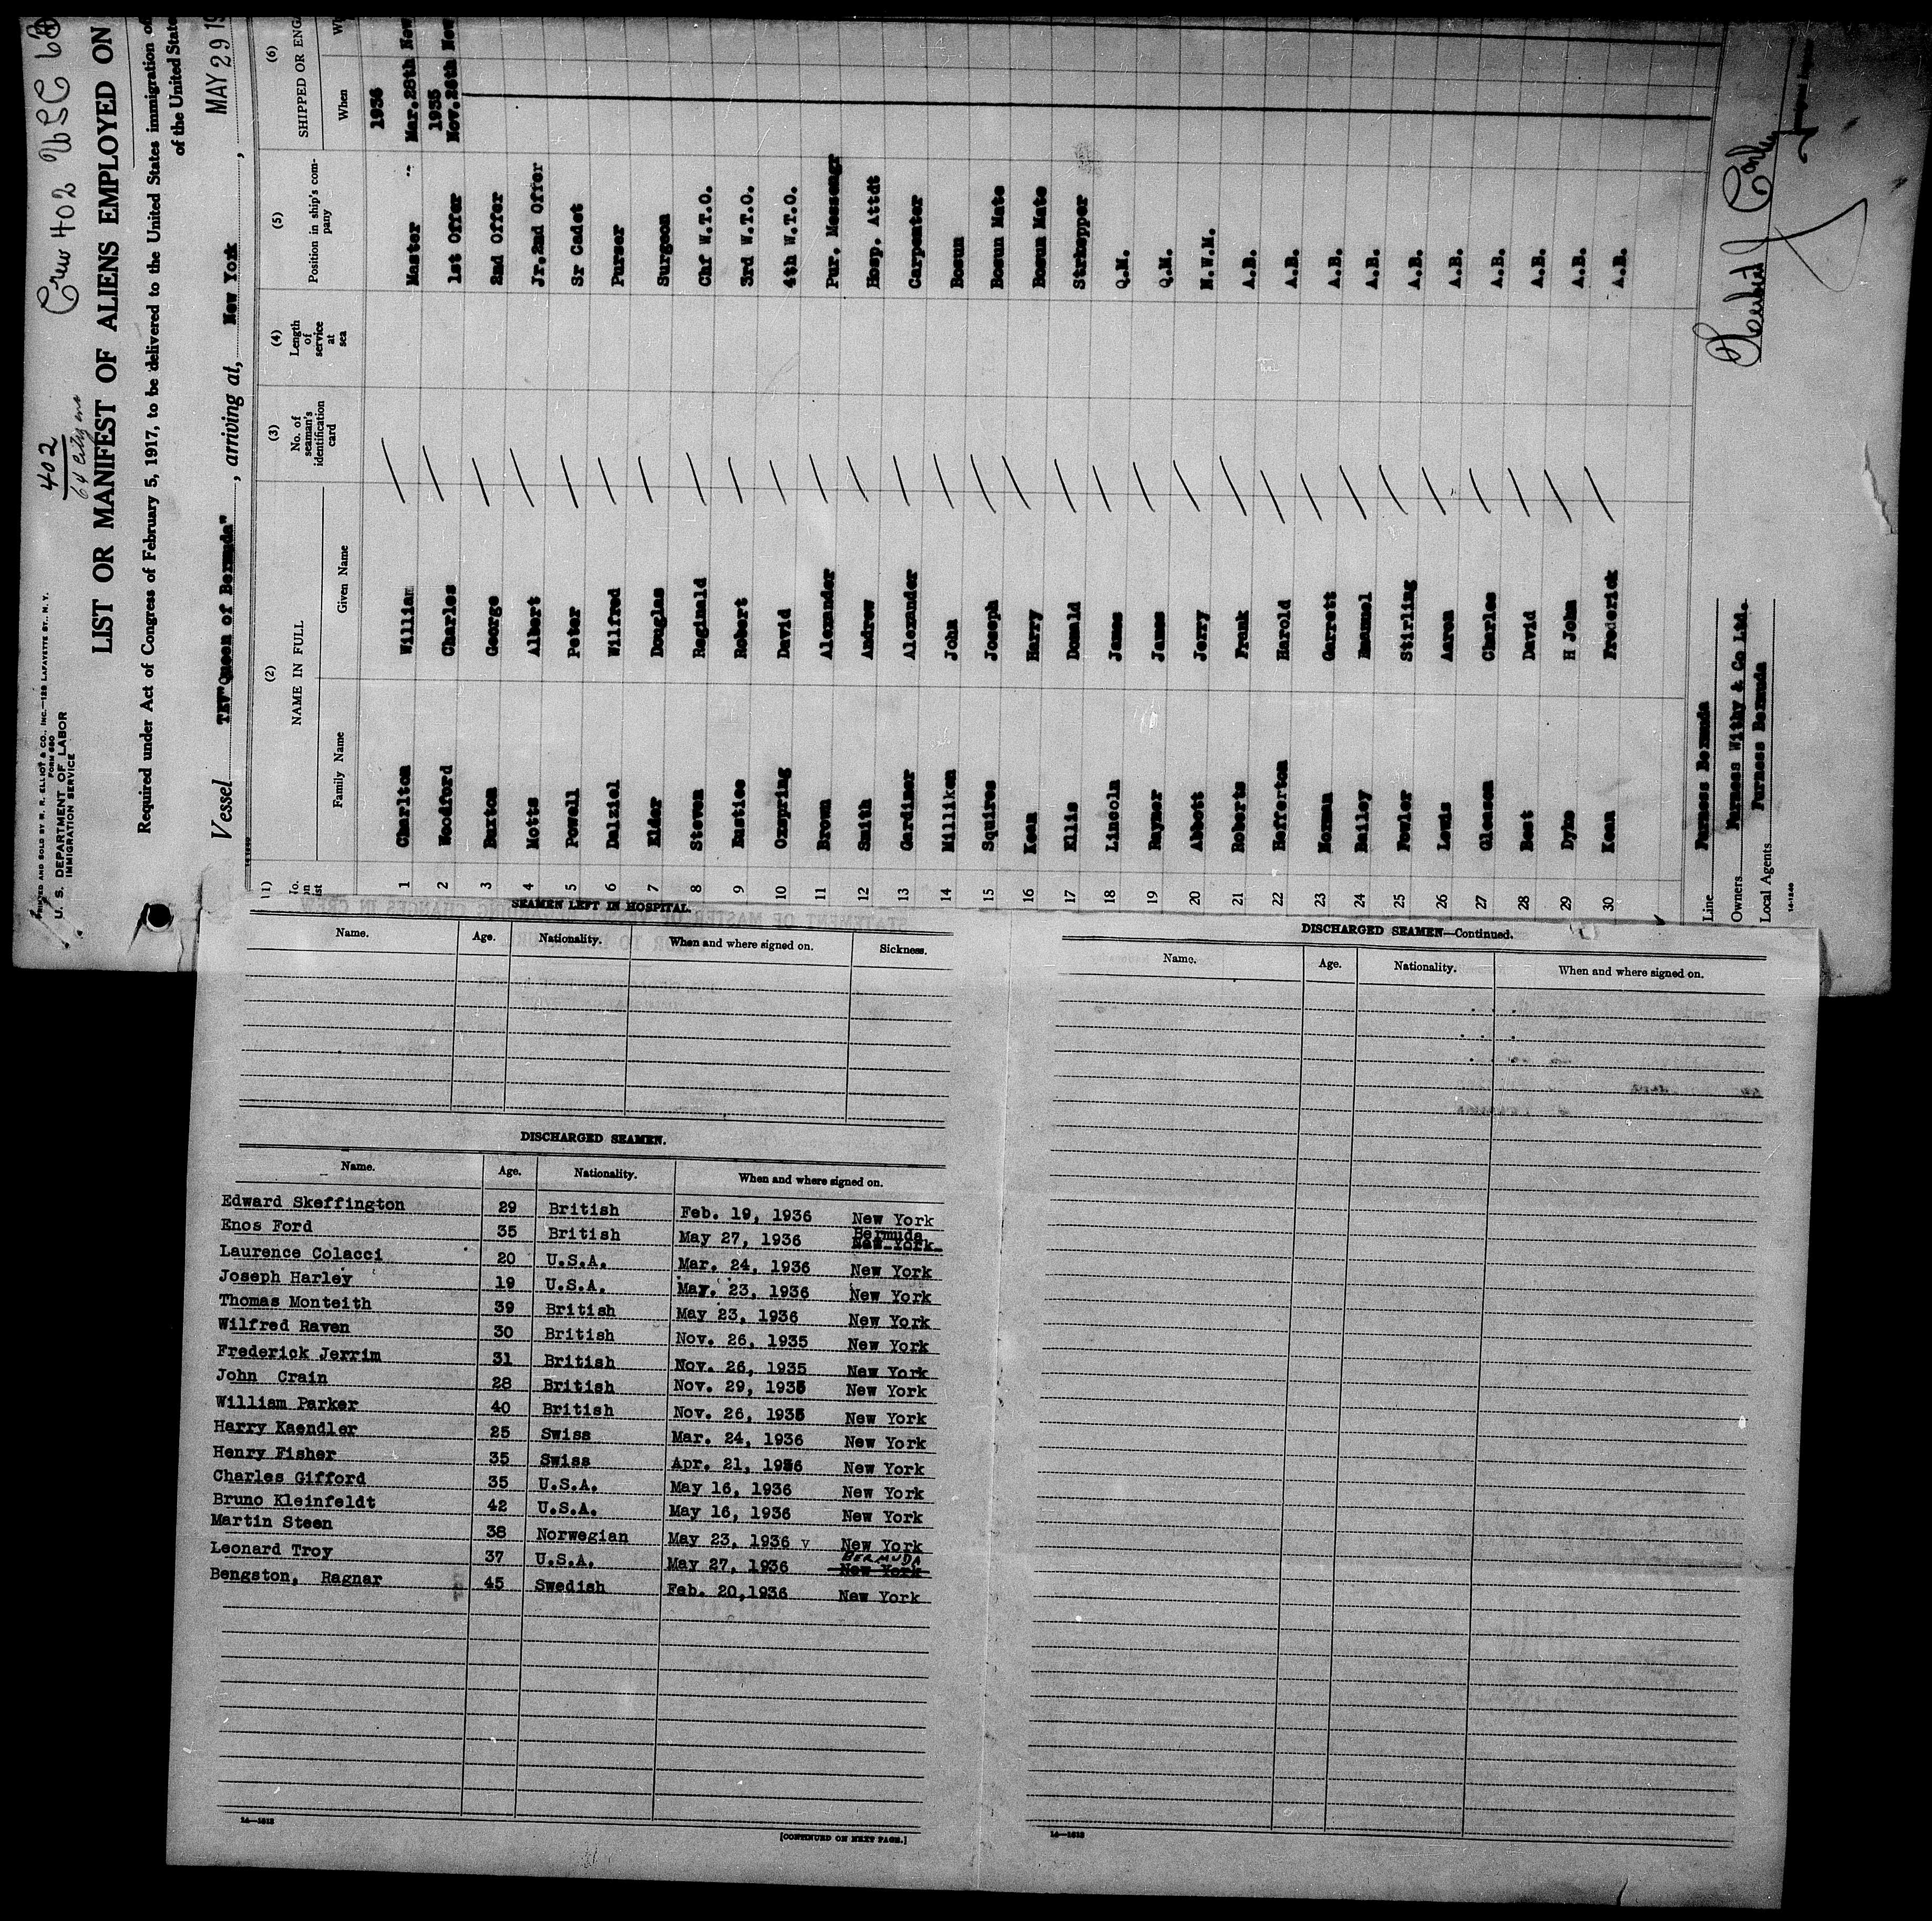 Crew 402 USC 63
402
64 Citizens
PRINTED AND SOLD BY M. R. ELLIOT & CO., INC.—129 LAFAYETTE ST., N. Y.
FORM 680
U. S. DEPARTMENT OF LABOR
IMMIGRATION SERVICE
LIST OR MANIFEST OF ALIENS EMPLOYED ON
Required under Act of Congress of February 5, 1917, to be delivered to the United States immigration of
of the United State
Vessel TEV"Queen of Bermuda", arriving at, New York, MAY 29 19
(1) (2) (3) (4) (5) (6)
NAME IN FULL No. of seaman's identification card Length of service at sea Position in ship's com-pany SHIPPED OR ENGA
Family Name Given Name When
1936
1 Charlton William Master Mar.28th New
1935
2 Woodford Charles 1st Offer Nov.26th New
3 Buxton George 2nd Offer
4 Motts Albert Jr.2nd Offer
5 Powell Peter Sr Cadet
6 Dalziel Wilfred Purser
7 Elder Douglas Surgeon
8 Steven Reginald Chf W.T.O.
9 Eustice Robert 3rd W.T.O.
10 Oxspring David 4th W.T.O.
11 Brown Alexander Pur. Messengr
12 Smith Andrew Hosp. Attdt
13 Gardiner Alexander Carpenter
14 Milliken John Bosun
15 Squires Joseph Bosun Mate
16 Kean Harry Bosun Mate
17 Ellis Donald Strkepper
18 Lincoln James Q.M.
19 Rayner James Q.M.
20 Abbott Jerry N.W.M.
21 Roberts Frank A.B.
22 Hefferton Harold A.B.
23 Norman Garrett A.B.
24 Bailey Emanuel A.B.
25 Fowler Stirling A.B.
26 Lewis Aaron A.B.
27 Gleeson Charles A.B.
28 Best David A.B.
29 Dyke H John A.B.
30 Kean Frederick A.B.
Line Furness Bermuda
Owners Furness Withy & Co Ltd.
Local Agents Furness Bermuda
14-1240
SEAMEN LEFT IN HOSPITAL.
Name. Age. Nationality. When and where signed on. Sickness.
DISCHARGED SEAMEN.
Name. Age. Nationality. When and where signed on.
Edward Skeffington 29 British Feb. 19, 1936 New York
Enos Ford 35 British May 27, 1936 Bermuda New York
Laurence Colacci 20 U.S.A. Mar. 24, 1936 New York
Joseph Harley 19 U.S.A. May. 23, 1936 New York
Thomas Monteith 39 British May 23, 1936 New York
Wilfred Raven 30 British Nov. 26, 1935 New York
Frederick Jerrim 31 British Nov. 26, 1935 New York
John Crain 28 British Nov. 29, 1935 New York
William Parker 40 British Nov. 26, 1935 New York
Harry Kaendler 25 Swiss Mar. 24, 1936 New York
Henry Fisher 35 Swiss Apr. 21, 1936 New York
Charles Gifford 35 U.S.A. May 16, 1936 New York
Bruno Kleinfeldt 42 U.S.A. May 16, 1936 New York
Martin Steen 38 Norwegian May 23, 1936 v New York
Leonard Troy 37 U.S.A. May 27, 1936 BERMUDA New York
Bengston, Ragnar 45 Swedish Feb. 20,1936 New York
14—1613
[CONTINUED ON NEXT PAGE.]
DISCHARGED SEAMEN—Continued.
Name. Age. Nationality. When and where signed on.
14—1613